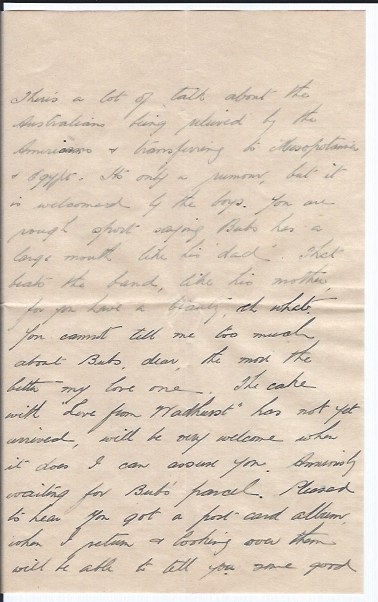 There's a lot of talk about the
Australians being relieved by the
Americans & transferring to Mesopotamia
& Egypt. It's only a rumour, but it
is welcomed by the boys. You are
rough sport saying Bubs has a
large mouth like his "dad". That
beats the band, like his mother,
for you have a beauty, eh what.
You cannot tell me too much
about Bubs, dear, the more the
better my love one. The cake
with "Love from Wadhurst" has not yet
arrived, will be very welcome when
it does I can assure you. Anxiously
waiting for Bub's parcel. Pleased
to hear you got a post card album,
when I return & looking over them
will be able to tell you some good